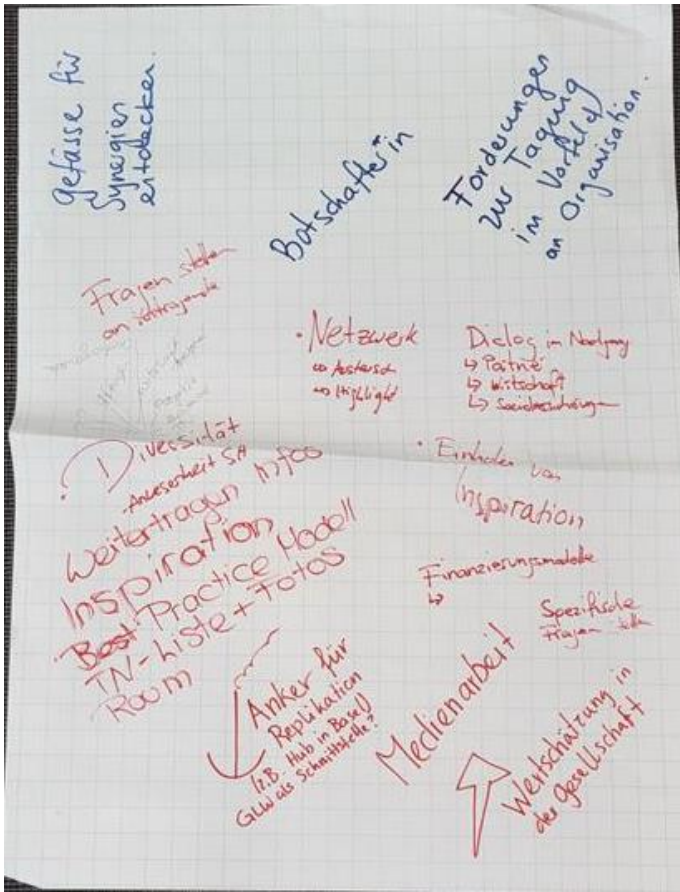 Gefässe für
Synergien
entdecken.
Botschafter*in
Forderungen
zur Tagung
im Vorfeld
an Organisation.
Fragen stellen
an
• Netzwerk
↪ Austausch
↪ Highlight
Dialog im Nachgang
↳
↳ Wirtschaft
↳
• Diversität
- Anwesenheit SH
Weitertragen Infos
Inspiration
• Best Practice Modell
TN-Liste + Fotos
Room
• Einholen von
Inspiration
Finanzierungsmodelle
↳
Spezifische
Fragen stellen
Anker für
Replikation
(z.B. Hub in Basel)
GLW als Schnittstelle?
Medienarbeit
Wertschätzung in
der Gesellschaft